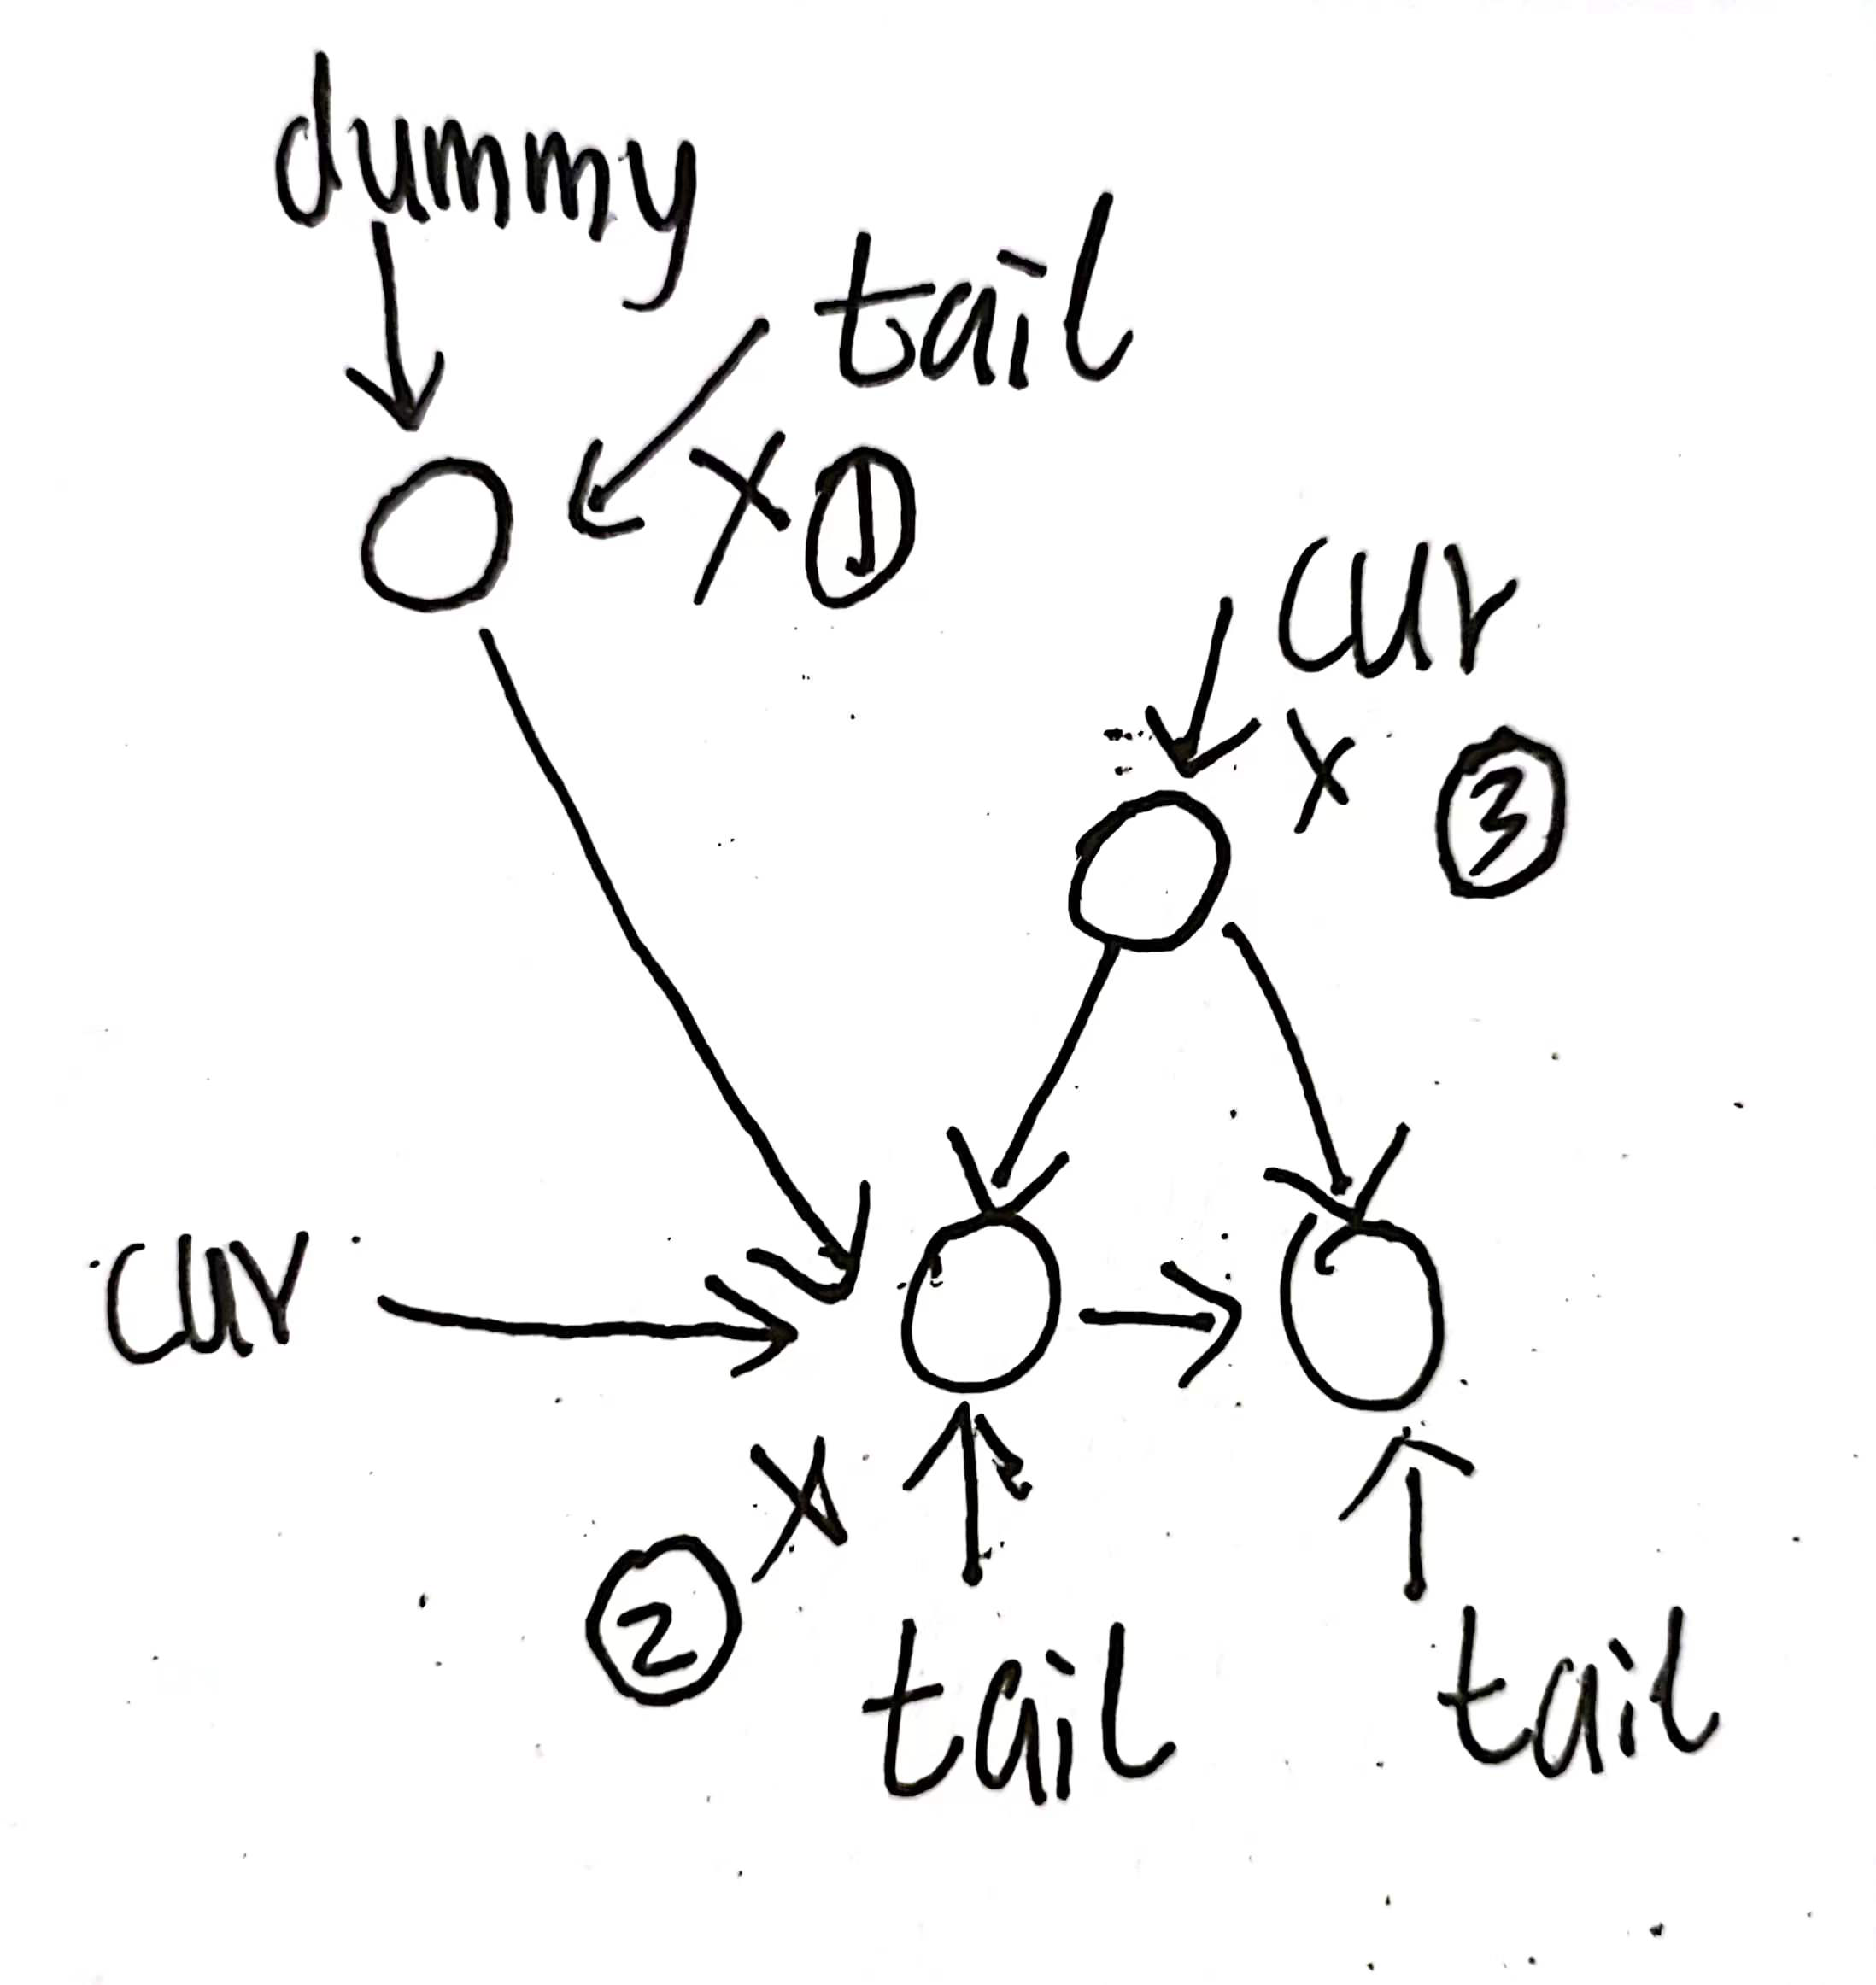 dummy
tail
X ①
cur
X ③
cur
② X
tail
tail